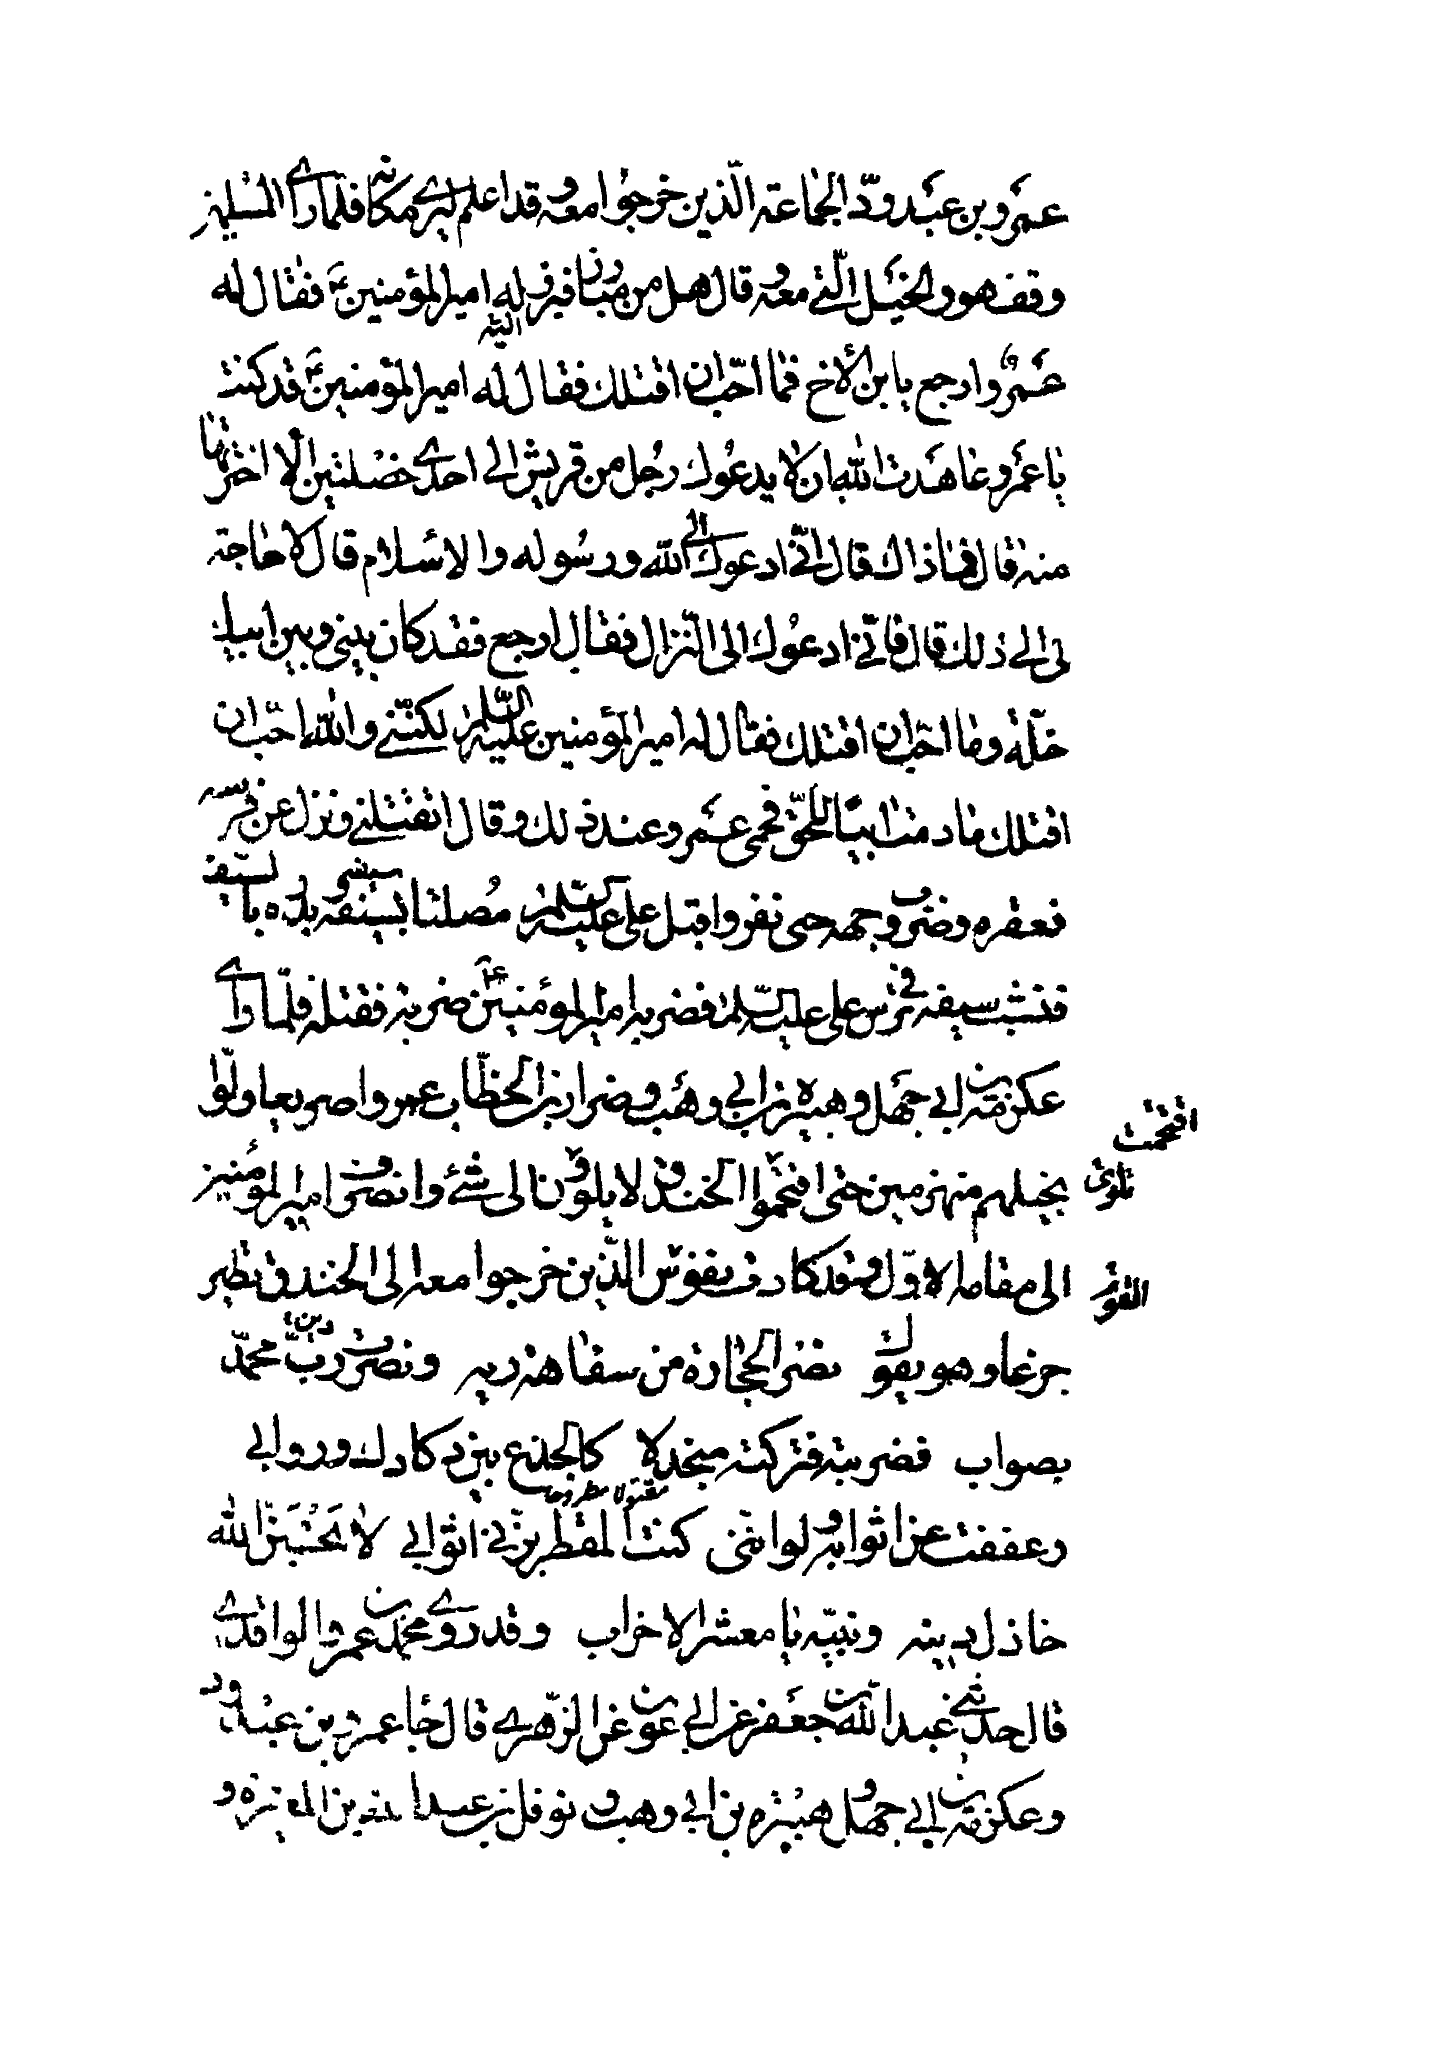 عمرو بن عبد ودّ الجماعة الّذين خرجوا معه وقد اعلم ليرى مكانه فلمّا راى المسلمين
وقف هو والخيل الّتى معه وقال هل من مبارز فبرز اليه امير المؤمنين ع فقال له
عمرو ارجع يابن الاخ فما احبّ ان اقتلك فقال له امير المؤمنين ع قد كنت
يا عمرو عاهدت الله ان لا يدعوك رجل من قريش الى احدى خصلتين الا اخترتها
منه قال فما ذاك قال انّى ادعوك الى الله ورسوله والاسلام قال لا حاجة
لى الى ذلك قال فانّى ادعوك الى النّزال فقال ارجع فقد كان بينى وبين ابيك
خلّة وما احبّ ان اقتلك فقال له امير المؤمنين عليه السّلم لكنّنى والله احبّ ان
اقتلك ما دمت ابيّا للحقّ فحمى عمرو عند ذلك وقال اتقتلنى ونزل عن فرسه
فعقره وضرب وجهه حتى نفر واقبل على على عليه السّلم مصلتا سيفه بدره بالسيف
فنشب سيفه فى ترس على عليه السّلم فضربه امير المؤمنين ع ضربة فقتله فلمّا راى
عكرمة بن ابى جهل وهبيرة بن ابى وهب وضرار بن الخطّاب عمروا صريعا ولّوا
بخيلهم منهزمين حتى اقتحموا الخندق لا يلوون الى شئ وانصرف امير المؤمنين
افتحمت
تلوى
الى مقامه الاوّل وقد كادت نفوس الّذين خرجوا معه الى الخندق تطير
جزعا وهو يقول نصر الحجارة من سفاهة رايه ونصرت ربّ محمّد
بصواب فضربته فتركته متجدلا كالجذع بين دكادك وروابى
مقتولا مطروحا
وعففت عن اثوابه ولو انّنى كنت المقطر بزّنى اثوابى لا تحسبنّ الله
خاذل دينه ونبيّه يا معشر الاحزاب وقد روى محمّد بن عمرو الواقدى
قال حدثنى عبد الله بن جعفر عن ابى عون عن الزّهرى قال جاء عمرو بن عبد ود
وعكرمة بن ابى جهل وهبيرة بن ابى وهب ونوفل بن عبد الله بن المغيرة و